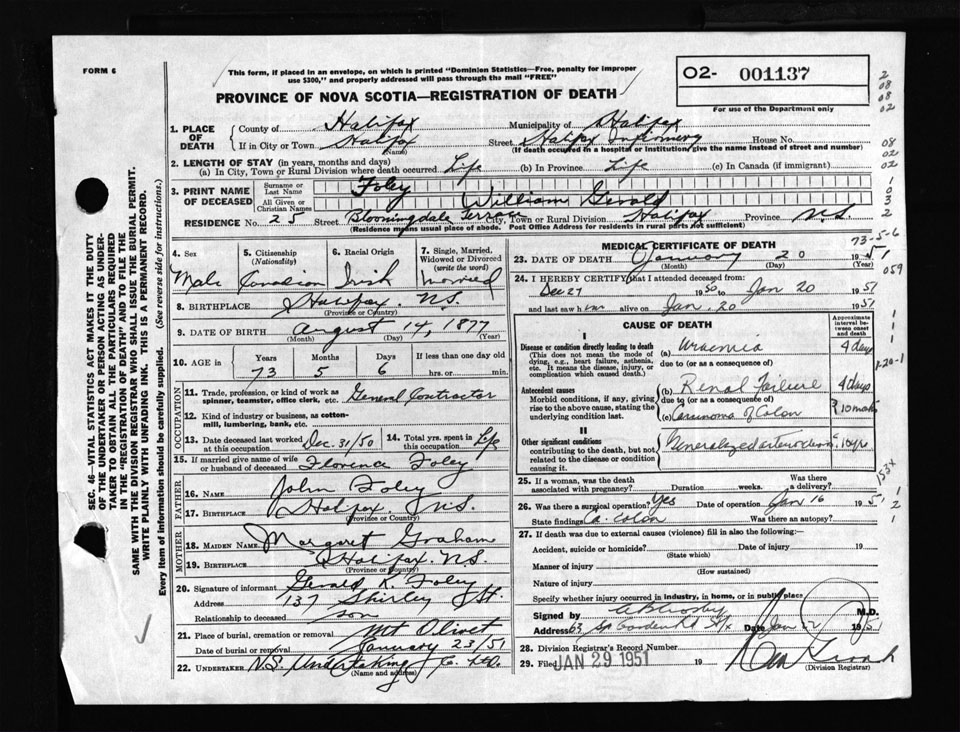 FORM 6
This form, if placed in an envelope, on which is printed "Dominion Statistics—Free, penalty for improper
use $300," and properly addressed will pass through the mail "FREE"
PROVINCE OF NOVA SCOTIA—REGISTRATION OF DEATH
02- 001137
For use of the Department only
1. PLACE OF DEATH County of Halifax Municipality of Halifax
If in City or Town Halifax (Name) Street Halifax Infirmary House No.
(If death occurred in a hospital or institution, give the name instead of street and number)
2. LENGTH OF STAY (in years, months and days)
(a) In City, Town or Rural Division where death occurred Life (b) In Province Life (c) In Canada (if immigrant)
3. PRINT NAME OF DECEASED Surname or Last Name Foley
All Given or Christian Names William Gerald
RESIDENCE No. 25 Street Bloomingdale Terrace City, Town or Rural Division Halifax Province N.S.
(Residence means usual place of abode. Post Office Address for residents in rural parts not sufficient)
SEC. 46—VITAL STATISTICS ACT MAKES IT THE DUTY
OF THE UNDERTAKER OR PERSON ACTING AS UNDER-
TAKER TO OBTAIN ALL THE PARTICULARS REQUIRED
IN THE "REGISTRATION OF DEATH" AND TO FILE THE
SAME WITH THE DIVISION REGISTRAR WHO SHALL ISSUE THE BURIAL PERMIT.
WRITE PLAINLY WITH UNFADING INK. THIS IS A PERMANENT RECORD.
Every item of information should be carefully supplied. (See reverse side for instructions.)
4. Sex Male
5. Citizenship (Nationality) Canadian
6. Racial Origin Irish
7. Single, Married, Widowed or Divorced (write the word) Married
8. BIRTHPLACE Halifax. N.S.
(Province or Country)
9. DATE OF BIRTH August 14, 1877
(Month) (Day) (Year)
10. AGE in Years 73 Months 5 Days 6 If less than one day old hrs. or min.
OCCUPATION
11. Trade, profession, or kind of work as spinner, teamster, office clerk, etc. General Contractor
12. Kind of industry or business, as cotton-mill, lumbering, bank, etc.
13. Date deceased last worked at this occupation Dec. 31/50 14. Total yrs. spent in this occupation Life
15. If married give name of wife or husband of deceased Florence Foley
FATHER
16. NAME John Foley
17. BIRTHPLACE Halifax, N.S.
(Province or Country)
MOTHER
18. MAIDEN NAME Margaret Graham
19. BIRTHPLACE Halifax. N.S.
(Province or Country)
20. Signature of informant Gerald K. Foley
Address 137 Shirley St.
Relationship to deceased son
21. Place of burial, cremation or removal Mt Olivet
Date of burial or removal January 23/51
22. UNDERTAKER N.S. Undertaking Co. Ltd.
(Name and address)
MEDICAL CERTIFICATE OF DEATH
23. DATE OF DEATH January 20 1951
(Month) (Day)
24. I HEREBY CERTIFY that I attended deceased from:
Dec 27 1950 to Jan 20 1951
and last saw him alive on Jan. 20 1951
CAUSE OF DEATH
Approximate interval between onset and death
I
Disease or condition directly leading to death
(This does not mean the mode of dying, e.g., heart failure, asthenia, etc. It means the disease, injury, or complication which caused death.)
(a) Uraemia 4 days
due to (or as a consequence of)
Antecedent causes
Morbid conditions, if any, giving rise to the above cause, stating the underlying condition last.
(b) Renal Failure 4 days
due to (or as a consequence of)
(c) Carcinoma of Colon 10 mths
II
Other significant conditions contributing to the death, but not related to the disease or condition causing it.
Generalized arteriosclerosis 10 yrs
25. If a woman, was the death associated with pregnancy? Duration weeks. Was there a delivery?
26. Was there a surgical operation? Yes Date of operation Jan 16 1951
State findings Ca. Colon Was there an autopsy?
27. If death was due to external causes (violence) fill in also the following:—
Accident, suicide or homicide? Date of injury 19
(State which)
Manner of injury
(How sustained)
Nature of injury
Specify whether injury occurred in industry, in home, or in public place
Signed by M.D.
Address 63 Date Jan 22 1951
28. Division Registrar's Record Number
29. Filed JAN 29 1951 19
(Division Registrar)
2
08
08
02
08
02
02
1
0
3
2
73-5-6
059
1
1
1
1-20-1
153X
1
2
1